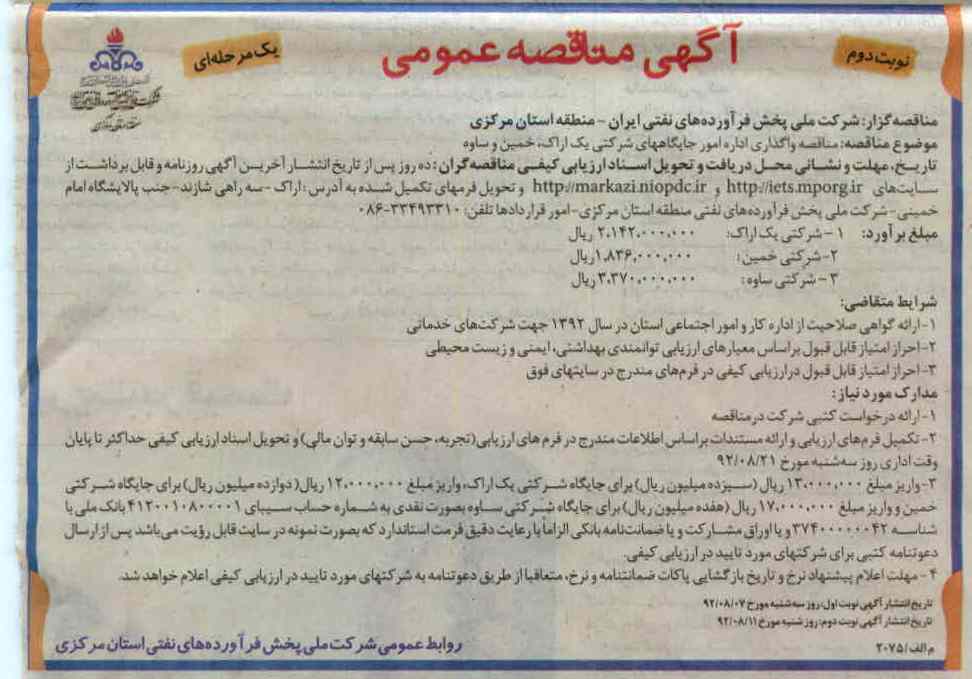 نوبت دوم
آگهی مناقصه عمومی
یک مرحله‌ای
مناقصه گزار: شرکت ملی پخش فرآورده‌های نفتی ایران - منطقه استان مرکزی
موضوع مناقصه: مناقصه واگذاری اداره امور جایگاههای شرکتی یک اراک، خمین و ساوه
تاریخ، مهلت و نشانی محل دریافت و تحویل اسناد ارزیابی کیفی مناقصه‌گران: ده روز پس از تاریخ انتشار آخرین آگهی روزنامه و قابل برداشت از
سایت‌های http://iets.mporg.ir و http://markazi.niopdc.ir و تحویل فرمهای تکمیل شده به آدرس: اراک -سه راهی شازند-جنب پالایشگاه امام
خمینی-شرکت ملی پخش فرآورده‌های نفتی منطقه استان مرکزی-امور قراردادها تلفن: ۳۳۴۹۳۳۱۰-۰۸۶
مبلغ برآورد: ۱-شرکتی یک اراک: ۲،۱۴۲،۰۰۰،۰۰۰ ریال
۲-شرکتی خمین: ۱،۸۳۶،۰۰۰،۰۰۰ریال
۳-شرکتی ساوه: ۳،۳۷۰،۰۰۰،۰۰۰ریال
شرایط متقاضی:
۱-ارائه گواهی صلاحیت از اداره کار و امور اجتماعی استان در سال ۱۳۹۲ جهت شرکت‌های خدماتی
۲-احراز امتیاز قابل قبول براساس معیارهای ارزیابی توانمندی بهداشتی، ایمنی و زیست محیطی
۳-احراز امتیاز قابل قبول درارزیابی کیفی در فرم‌های مندرج در سایتهای فوق
مدارک مورد نیاز:
۱-ارائه درخواست کتبی شرکت درمناقصه
۲-تکمیل فرم‌های ارزیابی و ارائه مستندات براساس اطلاعات مندرج در فرم های ارزیابی(تجربه، حسن سابقه و توان مالی) و تحویل اسناد ارزیابی کیفی حداکثر تا پایان
وقت اداری روز سه‌شنبه مورخ ۹۲/۰۸/۲۱
۳-واریز مبلغ ۱۳،۰۰۰،۰۰۰ ریال (سیزده میلیون ریال) برای جایگاه شرکتی یک اراک، واریز مبلغ ۱۲،۰۰۰،۰۰۰ ریال( دوازده میلیون ریال) برای جایگاه شرکتی
خمین و واریز مبلغ ۱۷،۰۰۰،۰۰۰ ریال (هفده میلیون ریال) برای جایگاه شرکتی ساوه بصورت نقدی به شماره حساب سیبای ۴۱۲۰۰۱۰۸۰۰۰۰۱ بانک ملی با
شناسه ۳۷۴۰۰۰۰۰۰۴۲ و یا اوراق مشارکت و یا ضمانت‌نامه بانکی الزاماً با رعایت دقیق فرمت استاندارد که بصورت نمونه در سایت قابل رؤیت می‌باشد پس از ارسال
دعوتنامه کتبی برای شرکتهای مورد تایید در ارزیابی کیفی.
۴- مهلت اعلام پیشنهاد نرخ و تاریخ بازگشایی پاکات ضمانتنامه و نرخ، متعاقبا از طریق دعوتنامه به شرکتهای مورد تایید در ارزیابی کیفی اعلام خواهد شد.
تاریخ انتشار آگهی نوبت اول: روز سه‌شنبه مورخ ۹۲/۰۸/۰۷
تاریخ انتشار آگهی نوبت دوم: روز شنبه مورخ ۹۲/۰۸/۱۱
م الف/۲۰۷۵
روابط عمومی شرکت ملی پخش فرآورده‌های نفتی استان مرکزی